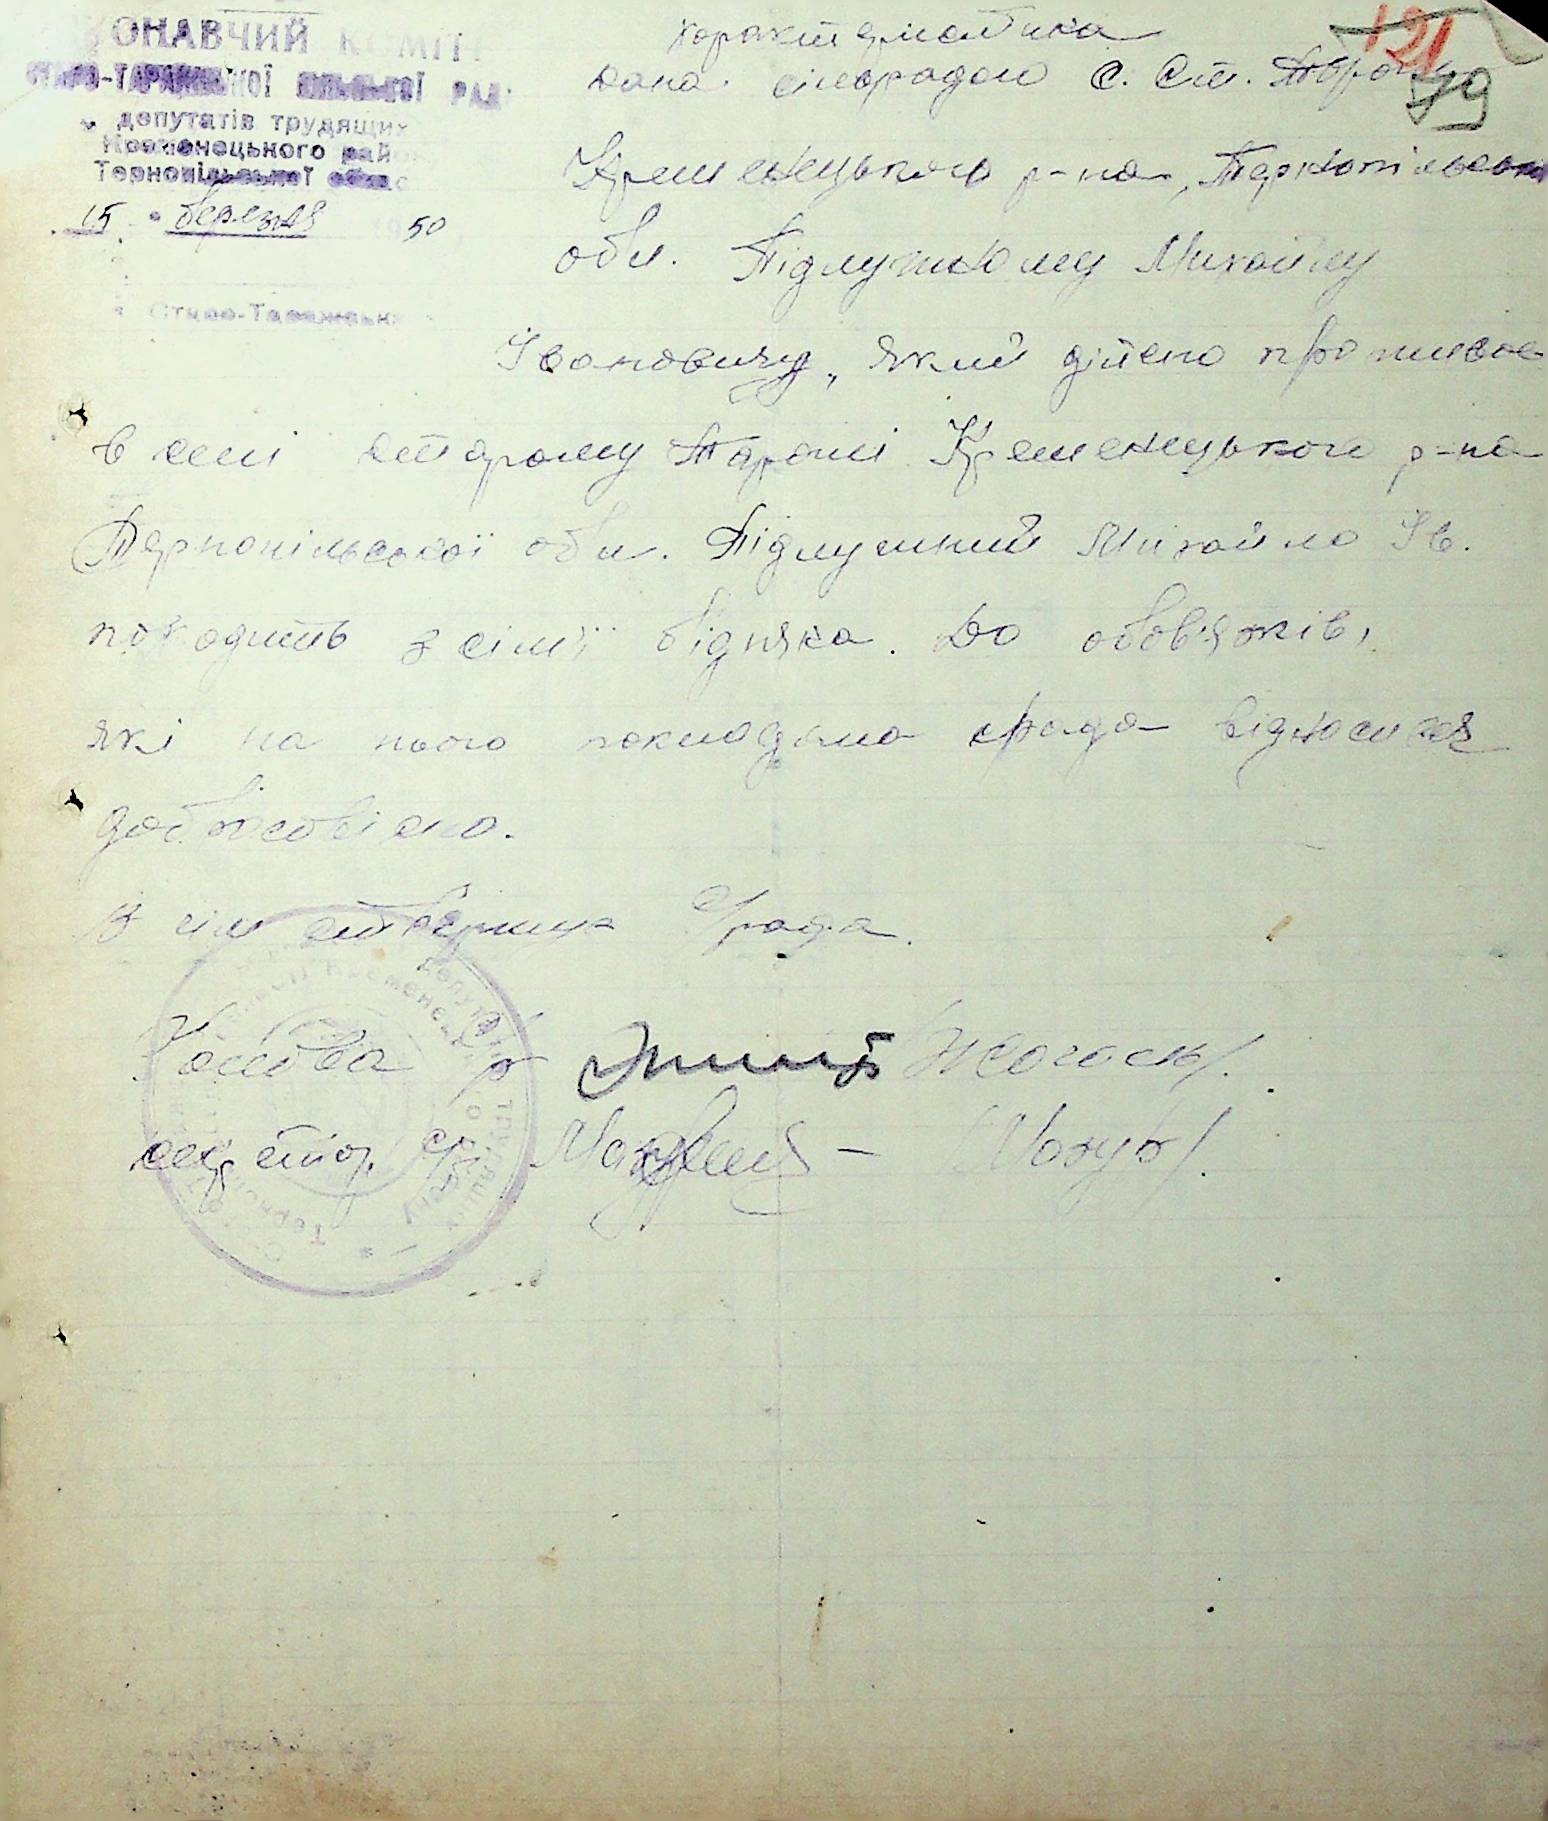 ОНАВЧИЙ КОМІТ
СТАРО-ТАРАЖСЬКОЇ СІЛЬСЬКОЇ РАД
депутатів трудящих
Кременецького рай
Тернопільської облас
15 березня 50
Старо-Таражськ
121
79
Характеристика
Дана сільрадою с. Ст. Тараж
Кременецького р-на, Тернопільської
обл. Підлужному Михайлу
Івановичу, який дійсно проживає
в селі Старому Таражі Кременецького р-на
Тернопільської обл. Підлужний Михайло Ів.
походить з сім'ї бідняка. До обов'язків,
які на нього покладала с/рада відносився
добросовісно.
В чім стверджує с/рада.
Голова с/р
секретар с/р